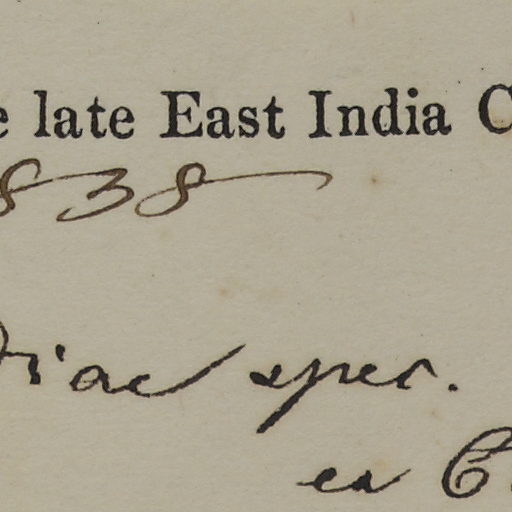 e late East India C
838
riae spec.
ex C